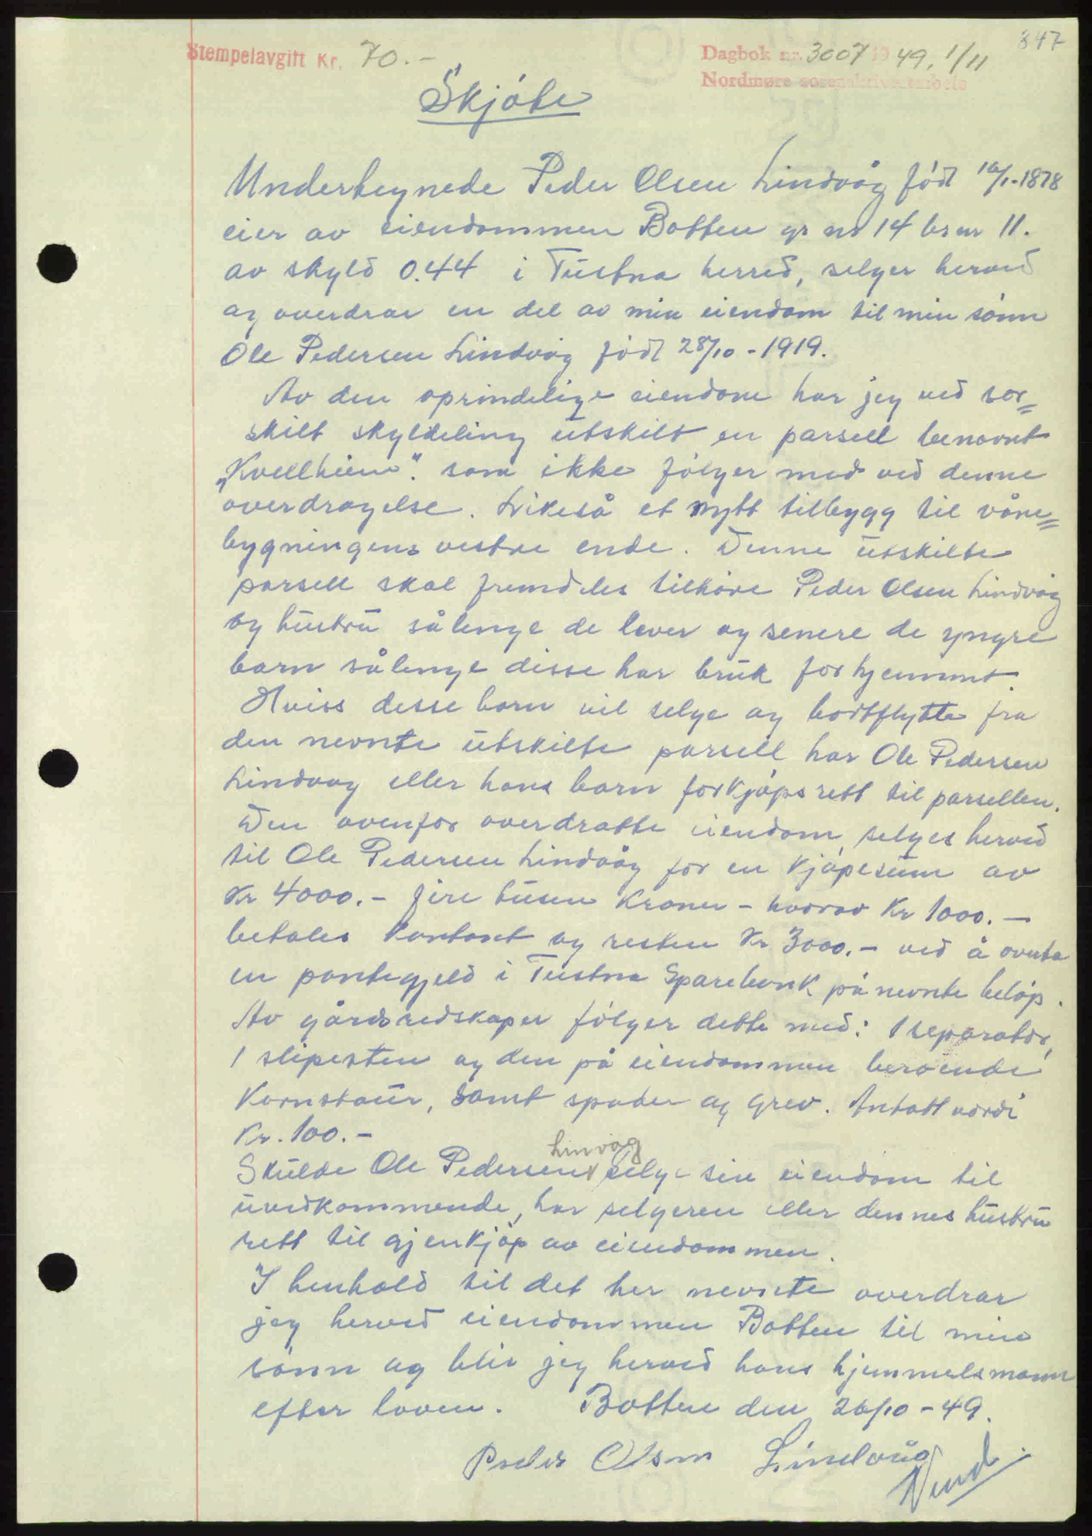 347
Stempelavgift Kr. 70.-
Dagbok nr. 3007 19 49. 1/11
Nordmøre sorenskriverembete
Skjøte
Undertegnede Peder Olsen Lindvåg født 10/1-1878
eier av eiendommen Botten gr nr 14 br nr 11.
av skyld 0.44 i Tustna herred, selger herved
og overdrar en del av min eiendom til min sønn
Ole Pedersen Lindvåg født 28/10-1919.
Av den oprindelige eiendom har jeg ved sær=
skilt skyldeling utskilt en parsell benevnt
„Kvellheim". som ikke følger med ved denne
overdragelse. Likeså et nytt tilbygg til våne=
bygningens vestre ende. Denne utskilte
parsell skal fremdeles tilhøre Peder Olsen Lindvåg
og hustru sålenge de lever og senere de yngre
barn sålenge disse har bruk for hjemmet.
Hviss desse born vil selge og bortflytte fra
den nevnte utskilte parsell har Ole Pedersen
Lindvag eller hans barn forkjøpsrett til parsellen.
Den ovenfor overdratte eiendom selges herved
til Ole Pedersen Lindvåg for en kjøpesum av
Kr 4000.- fire tusen kroner - hvorav Kr 1000.-
betales kontant og resten Kr 3000.- ved å overta
en pantegjeld i Tustna Sparebank på nevnte beløp.
Av gårdsredskaper følger dette med: 1 separator,
1 slipesten og den på eiendommen beroende
Kornstaur, samt spader og grev. Antatt verdi
Kr. 100.-
Linvåg
Skulde Ole Pedersen selge sin eiendom til
uvedkommende, har selgeren eller dennes hustru
rett til gjenkjøp av eiendommen.
I henhold til det her nevnte overdrar
jeg herved eiendommen Botten til min
sønn og blir jeg herved hans hjemmelsmann
efter loven. Botten den 26/10-49.
Peder Olsen Lindvåg
Vend